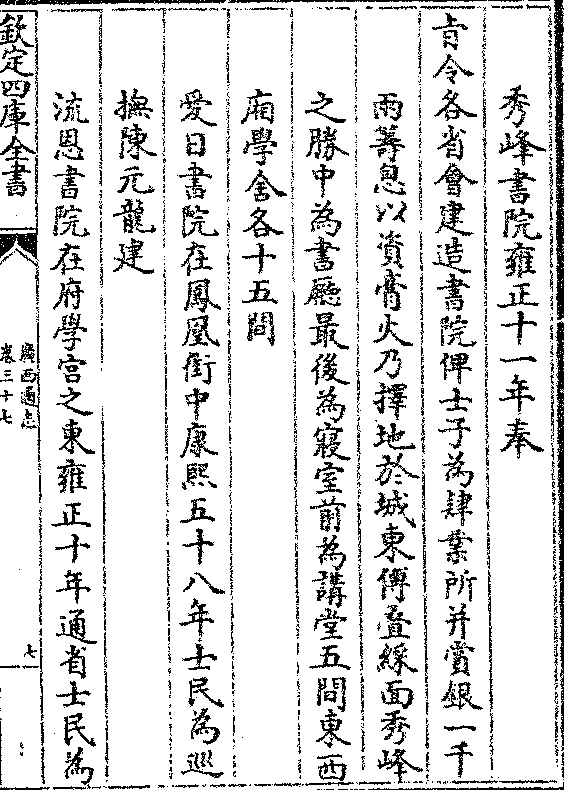 秀峰書院雍正十一年奉
㫖令各省會建造書院俾士子為肄業所并賞銀一千
兩籌息以資膏火乃擇地於城東傅疊綵面秀峰
之勝中為書廳最後為寢室前為講堂五間東西
廂學舍各十五間
愛日書院在鳳凰街中康熙五十八年士民為巡
撫陳元龍建
流恩書院在府學宮之東雍正十年通省士民為
欽定四庫全書
廣西通志
卷三十七
七